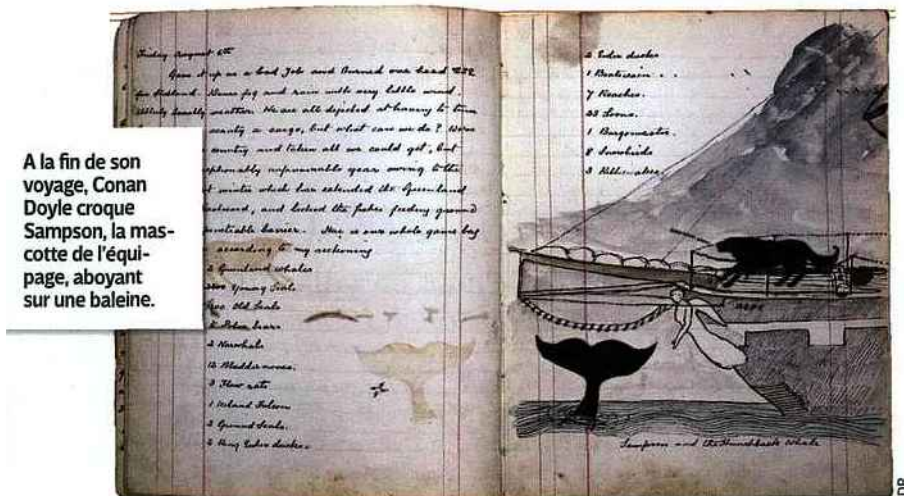 A la fin de son
voyage, Conan
Doyle croque
Sampson, la mas-
cotte de l'équi-
page, aboyant
sur une baleine.
Friday August 6th
Gave it up as a bad job and turned our head
for Shetland. Dense fog and rain with very little wind.
weather. We are all dejected at having to turn
scanty a cargo, but what can we do?
country and taken all we could get, but
unfavourable year owing to the
winter which has extended the Greenland
and locked the feeding ground
barrier. Here is our whole game bag
according to my reckoning
2 Greenland whales
Young Seals
Old Seals
Polar bears
2 Narwhals
12 Bladdernoses.
3 Flaw rats
1 Iceland Falcon
2 Ground Seals.
2 King Eider ducks.
2 Eider ducks
1 Boatswain
7 Roaches.
23 Loons.
1 Burgomaster.
8 Snowbirds
3 Kittiwakes.
HOPE
Sampson and the Humpback Whale